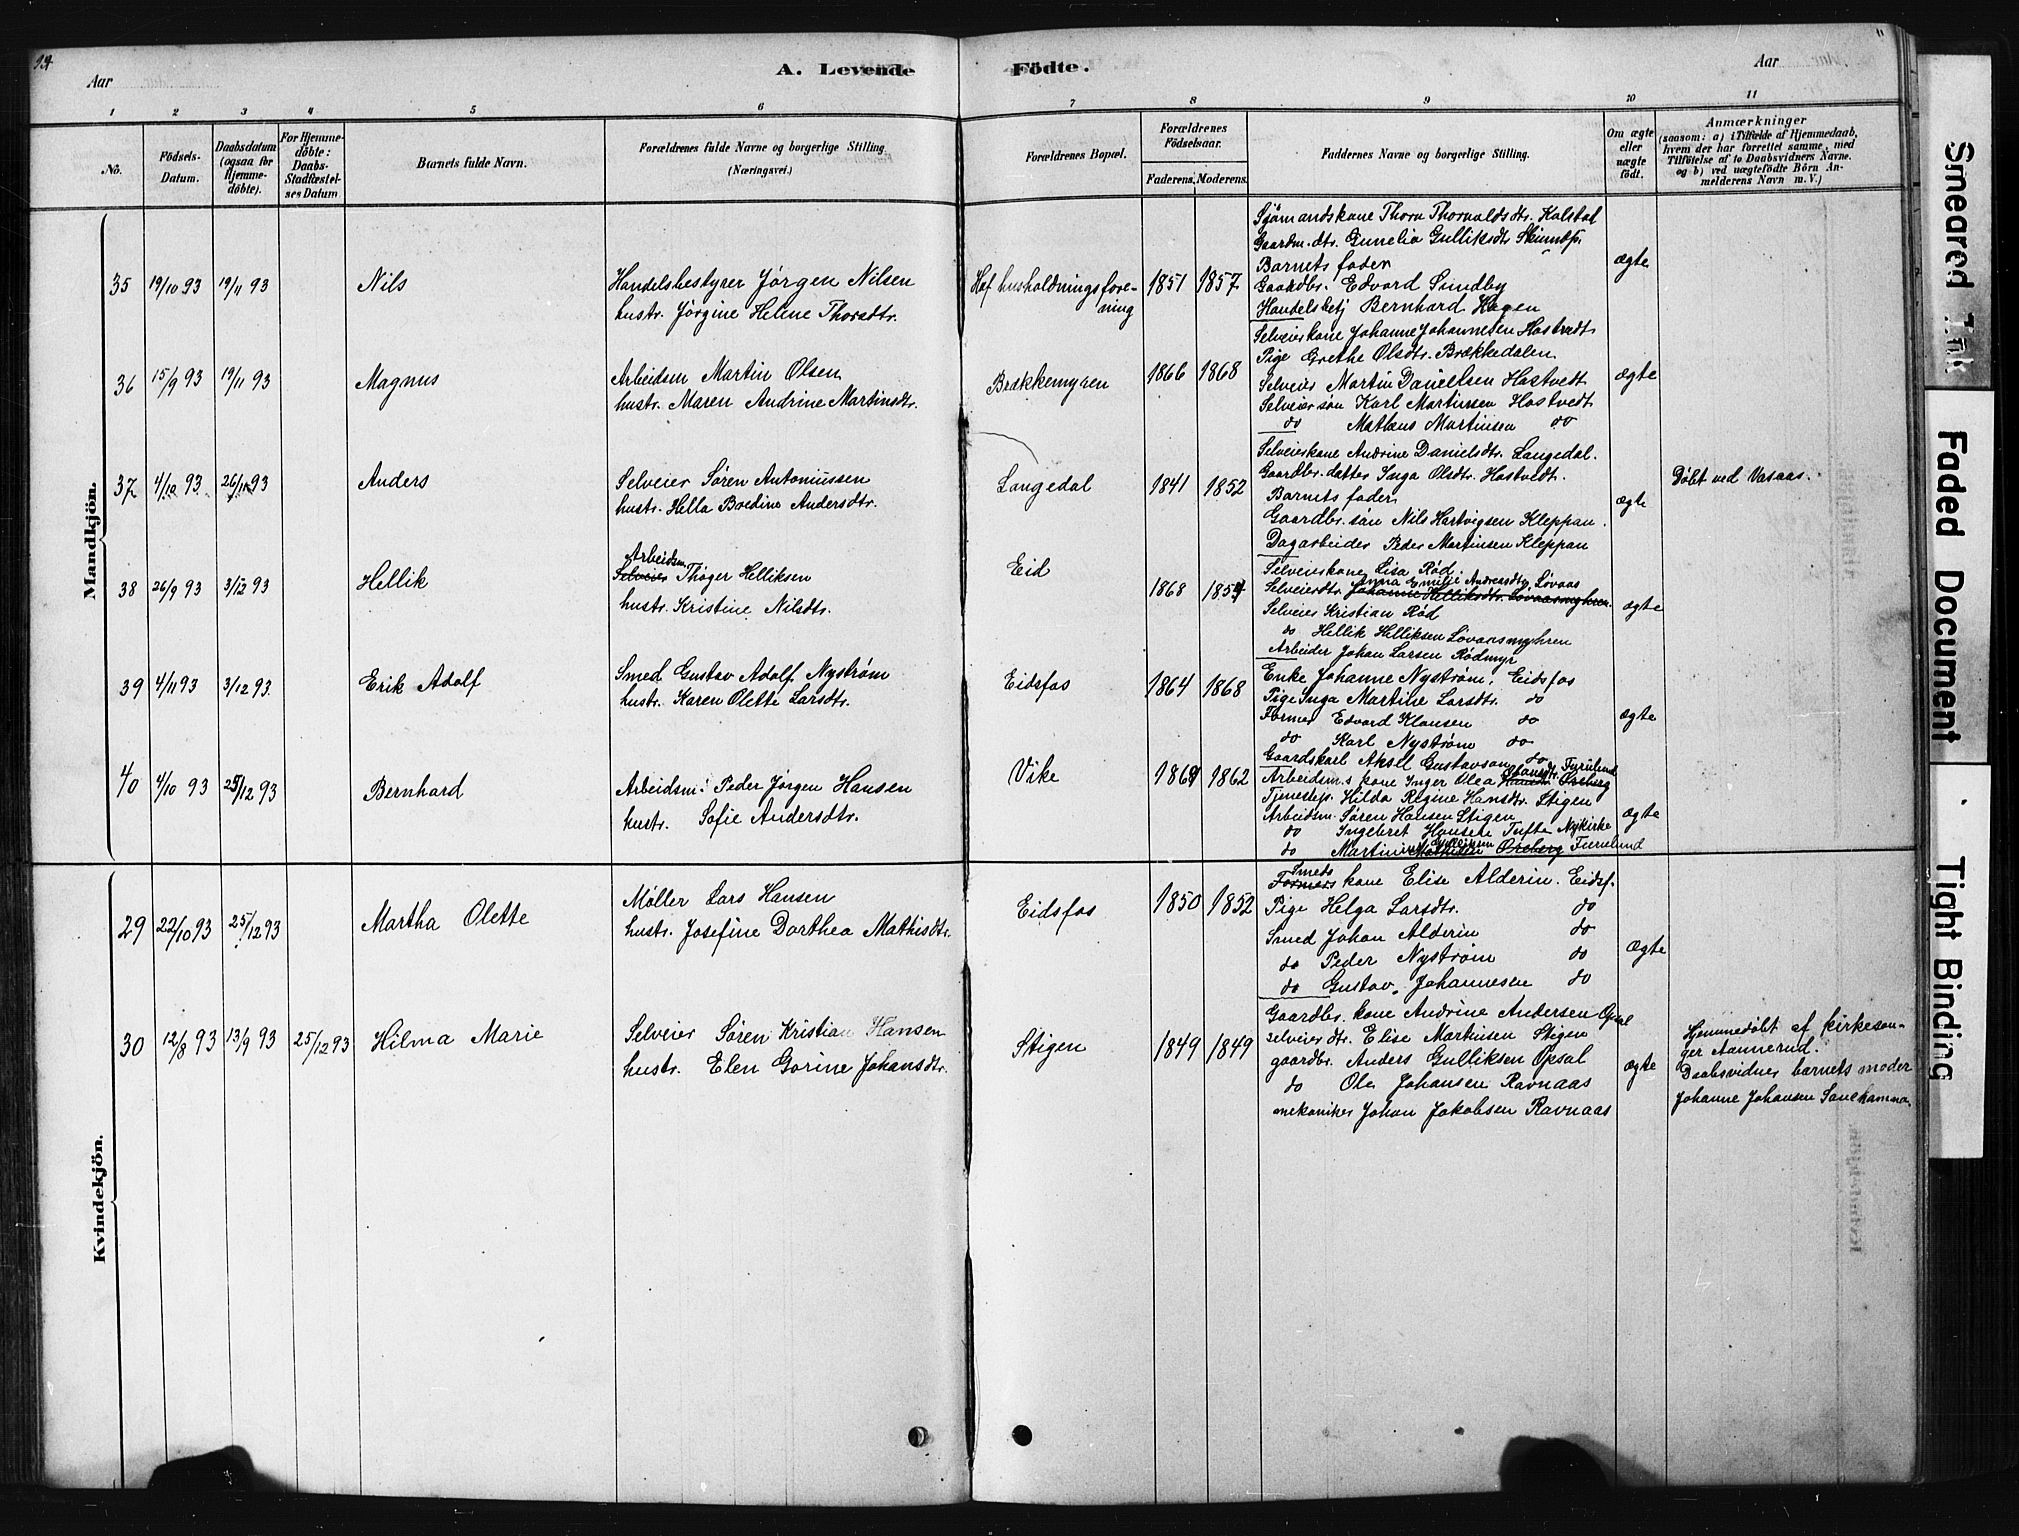 94
Aar
A. Levende
Födte.
Aar
1 2 3 4 5 6 7 8 9 10 11
No.
Födsels-
Datum.
Daabsdatum
(ogsaa for
Hjemme-
döbte).
For Hjemme-
döbte:
Daabs-
Stadfæstel-
ses Datum
Barnets fulde Navn.
Forældrenes fulde Navne og borgerlige Stilling
(Næringsvei.)
Forældrenes Bopæl.
Forældrenes
Födselsaar.
Faderens. Moderens.
Faddernes Navne og borgerlige Stilling.
Om ægte
eller
uægte
födt.
Anmærkninger
(saasom: a) i Tilfælde af Hjemmedaab,
hvem der har forrettet samme, med
Tilföielse af to Daabsvidners Navne.
og b) ved uægtefödte Börn An-
melderens Navn m. V.)
Mandkjön.
35 19/10 93 19/11 93 Nils
Handelsbestyrer Jørgen Nilsen
hustr. Jørgine Helene Thorsdtr.
Hof husholdningsfore-
ning
1851 1857
Sjømandskone Thora Thorvaldsdtr. Kolstad
Gaardm. dtr. Gunelia Gulliksdtr
Barnets fader
Gaardbr. Edvard Sundby
Handelsbetj Bernhard Hagen
ægte
36 15/9 93 19/11 93 Magnus
Arbeidsm Martin Olsen
hustr. Maren Andrine Martinsdtr.
Brækkemyren
1866 1868
Selveierkone Johanne Johannesen Hostvedt
Pige Grethe Olsdtr. Brækkedalen
Selveier Martin Danielsen Hostvedt
Selveiersøn Karl Martinsen Hostvedt
do Mathæus Martinsen do
ægte
37 4/10 93 26/11 93 Anders
Selveier Søren Antoniussen
hustr. Hella Bredine Andersdtr.
Langedal
1841 1852
Selveierkone Andrine Danielsdtr. Langedal.
Gaardbr. datter Inga Olsdtr. Hostvedt.
Barnets fader
Gaardbr. søn Nils Hartvigsen Kleppan.
Dagarbeider Peder Martinsen Kleppan
ægte
Døbt ved Vasaas.
38 26/9 93 3/12 93 Hellik
Arbeidsm.
Selveier Thøger Helliksen
hustr. Kristine Nilsdtr.
Eid
1868 1854
Selveierkone Lisa Rød.
Anna Emilie Andreasdtr. Løvaas
Selveierdtr. Johanne Helliksdtr. Løvaasmyhren.
Selveier Kristian Rød
do Hellik Helliksen Løvaasmyhren
Arbeider Johan Larsen Rødmyr
ægte
39 4/11 93 3/12 93 Erik Adolf
Smed Gustav Adolf Nystrøm
hustr. Karen Olette Larsdtr.
Eidsfos
1864 1868
Enke Johanne Nystrøm, Eidsfos
Pige Inga Martine Larsdtr. do
Former Edvard Klausen do
do Karl Nystrøm do
Gaardskarl Aksel Gustavson do
ægte
40 4/10 93 25/12 93 Bernhard
Arbeidsm: Peder Jørgen Hansen
hustr. Sofie Andersdtr.
Vike
1864 1862
Arbeidsm.s kone Inger Olea Øreberg
Tjenestep. Hilda Regine Hansdtr. Stigen
Arbeidsm. Søren Hansen Stigen
do Ingebret Hansen Tufte Nykirke
do Martin Mathisen Øreberg Furulund
ægte
Kvindekjön.
29 22/10 93 25/12 93 Martha Olette
Møller Lars Hansen
hustr. Josefine Dorthea Mathisdtr.
Eidsfos
1850 1852
Smeds
Formers kone Elise Alderin. Eidsf.
Pige Helga Larsdtr. do
Smed Johan Alderin do
do Peder Nystrøm do
do Gustav Johannesen do
Ægte
30 12/8 93 13/9 93 25/12 93 Hilma Marie
Selveier Søren Kristian Hansen
hustr. Elen Gorine Johansdtr.
Stigen
1849 1849
Gaardbr. kone Andrine Andersen Opsal
selveier dtr. Elise Mathisen Stigen
gaardbr. Anders Gulliksen Opsal
do Ole Johansen Ravnaas
mekaniker Johan Jakobsen Ravnaas
ægte
Hjemmedøbt af kirkesan-
ger Aannerud.
Daabsvidner barnets moder
Johanne Johansen
Smeared Ink
Faded Document
Tight Binding